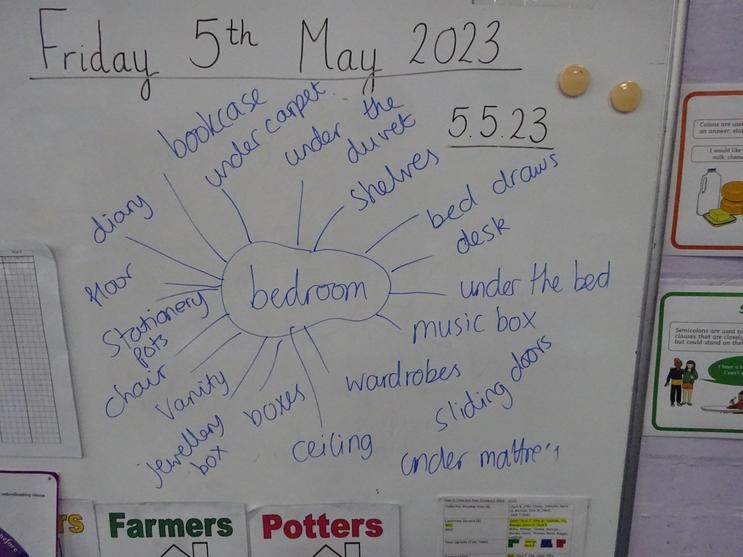 Friday 5th May 2023
5.5.23
bookcase
under carpet.
under the
duvet
shelves
bed draws
desk
under the bed
music box
wardrobes
sliding doors
under mattre
ceiling
boxes
jewellery
box
vanity
chair
stationery
pots
floor
diary
bedroom
Colons are use
an answer, ela
I would like
milk, chees
Semicolons are used to
clauses that are closely
but could stand on the
I have a
I can't
Farmers
Potters
rs
before